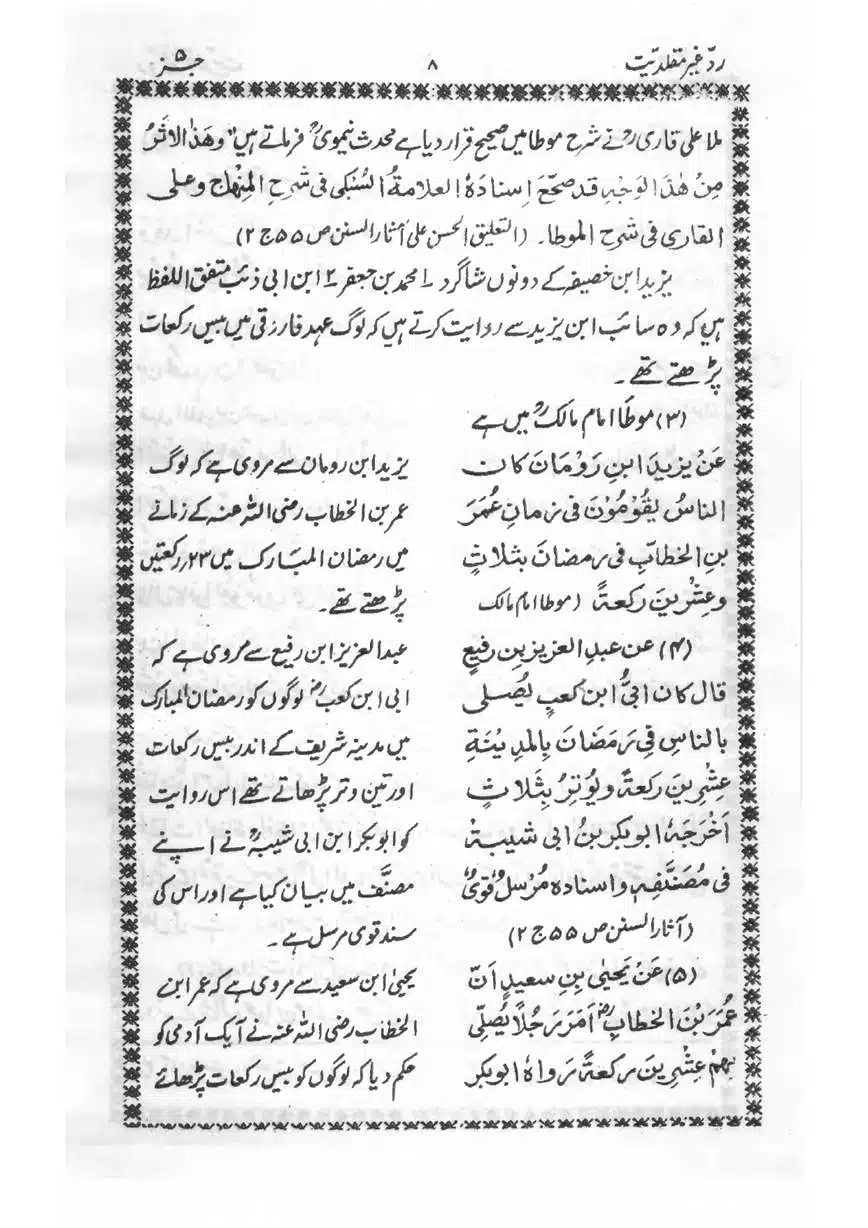 ردّ غیر مقلدیّت ۸ جز ۵
ملا علی قاریؒ نے شرح موطا میں صحیح قرار دیا ہے محدث نیمویؒ فرماتے ہیں "وھَذا الاثَرُ
مِنْ ھٰذَا الوَجْہِ قد صحّحَ اِسنادَہُ العلامۃُ السُبُکی فی شرحِ المِنْھاج وعلی
القاری فی شرح الموطا۔ (التعلیق الحسن علی آثار السنن ص ۵۵ ج ۲)
یزید ابن خصیفہ کے دونوں شاگرد ۱۔ محمد بن جعفر ۲۔ ابن ابی ذئب متفق اللفظ
ہیں کہ وہ سائب ابن یزید سے روایت کرتے ہیں کہ لوگ عہد فارزقی میں بیس رکعات
پڑھتے تھے۔
(۳) موطا امام مالکؒ میں ہے
عَنْ یزید ابنِ رَوْمَانَ کان
الناسُ یَقُوْمُوْنَ فی زمانِ عُمَرَ
بنِ الخطابِ فی رمضانَ بثلاثٍ
وعِشْرِینَ رکعۃً (موطا امام مالک
یزید ابن رومان سے مروی ہے کہ لوگ
عمر بن الخطاب رضی اللہ عنہ کے زمانے
میں رمضان المبارک میں ۲۳؍ رکعتیں
پڑھتے تھے۔
(۴) عن عبدِ العزیزِ بن رفیعٍ
قال کان ابیُّ ابن کعبٍ یُصلی
بالناسِ فی رَمَضَانَ بِالمدِیْنَۃِ
عِشْرِینَ رکعۃً ویُوْتِرُ بِثَلاثٍ
اَخْرَجَہُ ابوبکرِ بنُ ابی شیبۃ
فی مُصَنَّفِہٖ واسنادہ مُرْسَلٌ قویٌ
(آثار السنن ص ۵۵ ج ۲)
عبد العزیز ابن رفیع سے مروی ہے کہ
ابی ابن کعبؓ لوگوں کو رمضان المبارک
میں مدینہ شریف کے اندر بیس رکعات
اور تین وتر پڑھاتے تھے اس روایت
کو ابوبکر ابن ابی شیبہؒ نے اپنے
مصنَّف میں بیان کیا ہے اور اس کی
سند قوی مرسل ہے۔
(۵) عَنْ یَحْیٰی بنِ سعیدٍ اَنّ
عُمَرَ بْنَ الخطابِؓ اَمَرَ رَجُلًا یُصَلِّی
بِھِمْ عِشْرِینَ رکعۃً رواہ ابوبکر
یحییٰ ابن سعید سے مروی ہے کہ عمر ابن
الخطاب رضی اللہ عنہ نے ایک آدمی کو
حکم دیا کہ لوگوں کو بیس رکعات پڑھائے